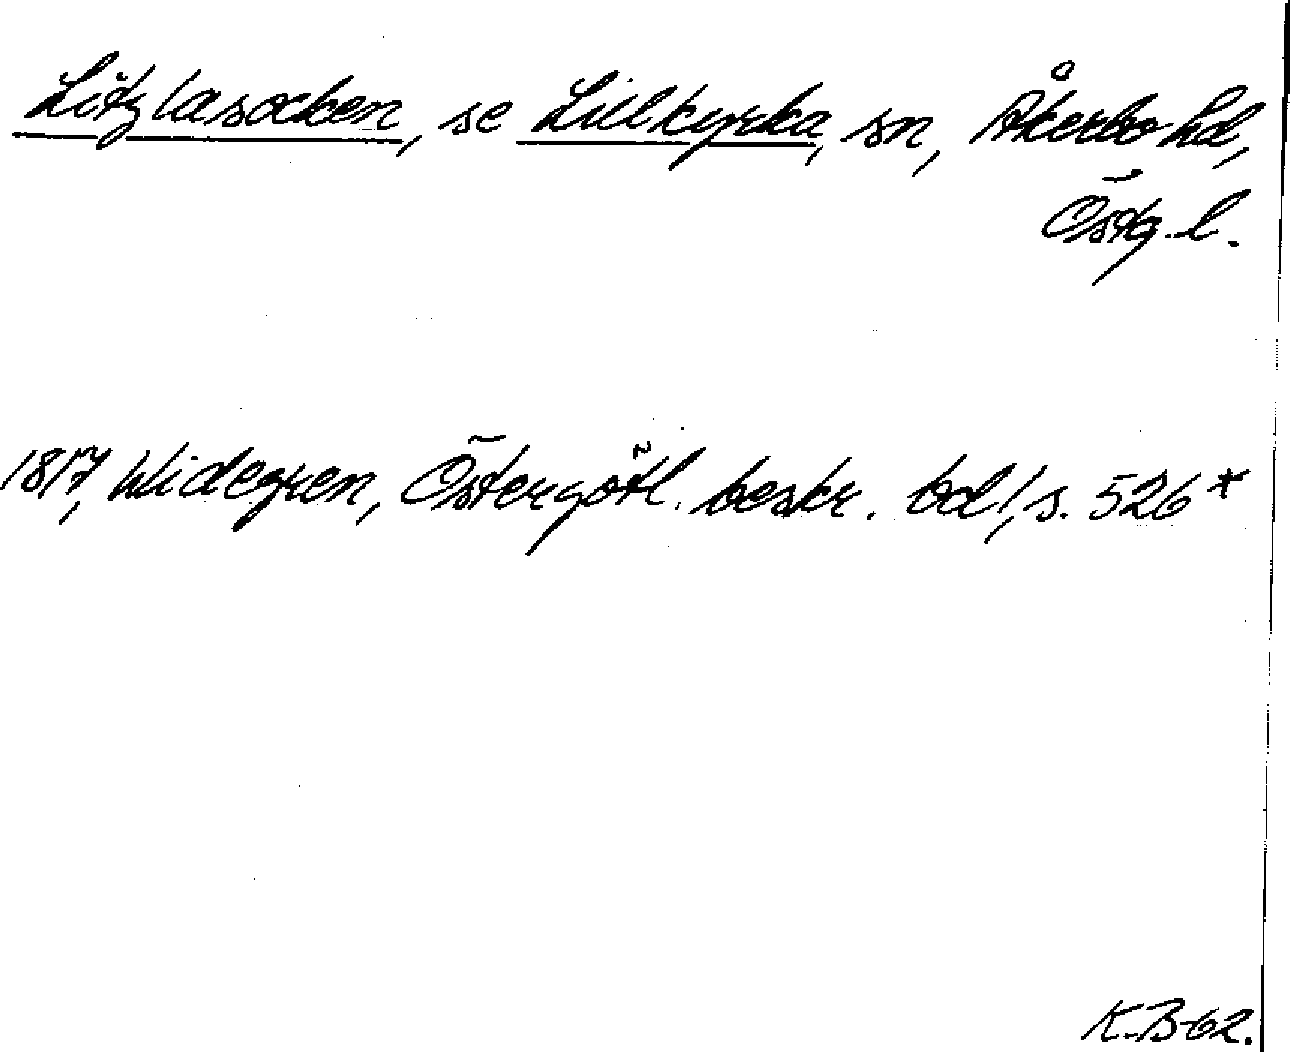 Litzlasocken, se Lillkyrka, sn, Åkerbo hd,
Östg. l.
1817, Widegren, Östergötl. beskr. bd 1, s. 526*
K.B-62.